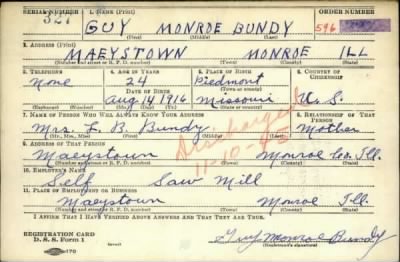 SERIAL NUMBER 1. NAME (Print) ORDER NUMBER
327 GUY MONROE BUNDY 596
(First) (Middle) (Last)
2. ADDRESS (Print)
MAEYSTOWN MONROE ILL
(Number and street or R. F. D. number) (Town) (County) (State)
3. TELEPHONE 4. AGE IN YEARS 5. PLACE OF BIRTH 6. COUNTRY OF CITIZENSHIP
None 24 Piedmont
DATE OF BIRTH (Town or county)
Aug 14 1916 Missouri U. S.
(Exchange) (Number) (Mo.) (Day) (Yr.) (State or country)
7. NAME OF PERSON WHO WILL ALWAYS KNOW YOUR ADDRESS 8. RELATIONSHIP OF THAT PERSON
Mrs. F. B. Bundy Mother
(Mr., Mrs., Miss) (First) (Middle) (Last)
Discharged
9. ADDRESS OF THAT PERSON
11-10-45
Maeystown Monroe Co. Ill.
(Number and street or R. F. D. number) (Town) (County) (State)
10. EMPLOYER'S NAME
Self Saw Mill
11. PLACE OF EMPLOYMENT OR BUSINESS
Maeystown Monroe Ill.
(Number and street or R. F. D. number) (Town) (County) (State)
I AFFIRM THAT I HAVE VERIFIED ABOVE ANSWERS AND THAT THEY ARE TRUE.
REGISTRATION CARD
D. S. S. Form 1 Guy Monroe Bundy
(Registrant's signature)